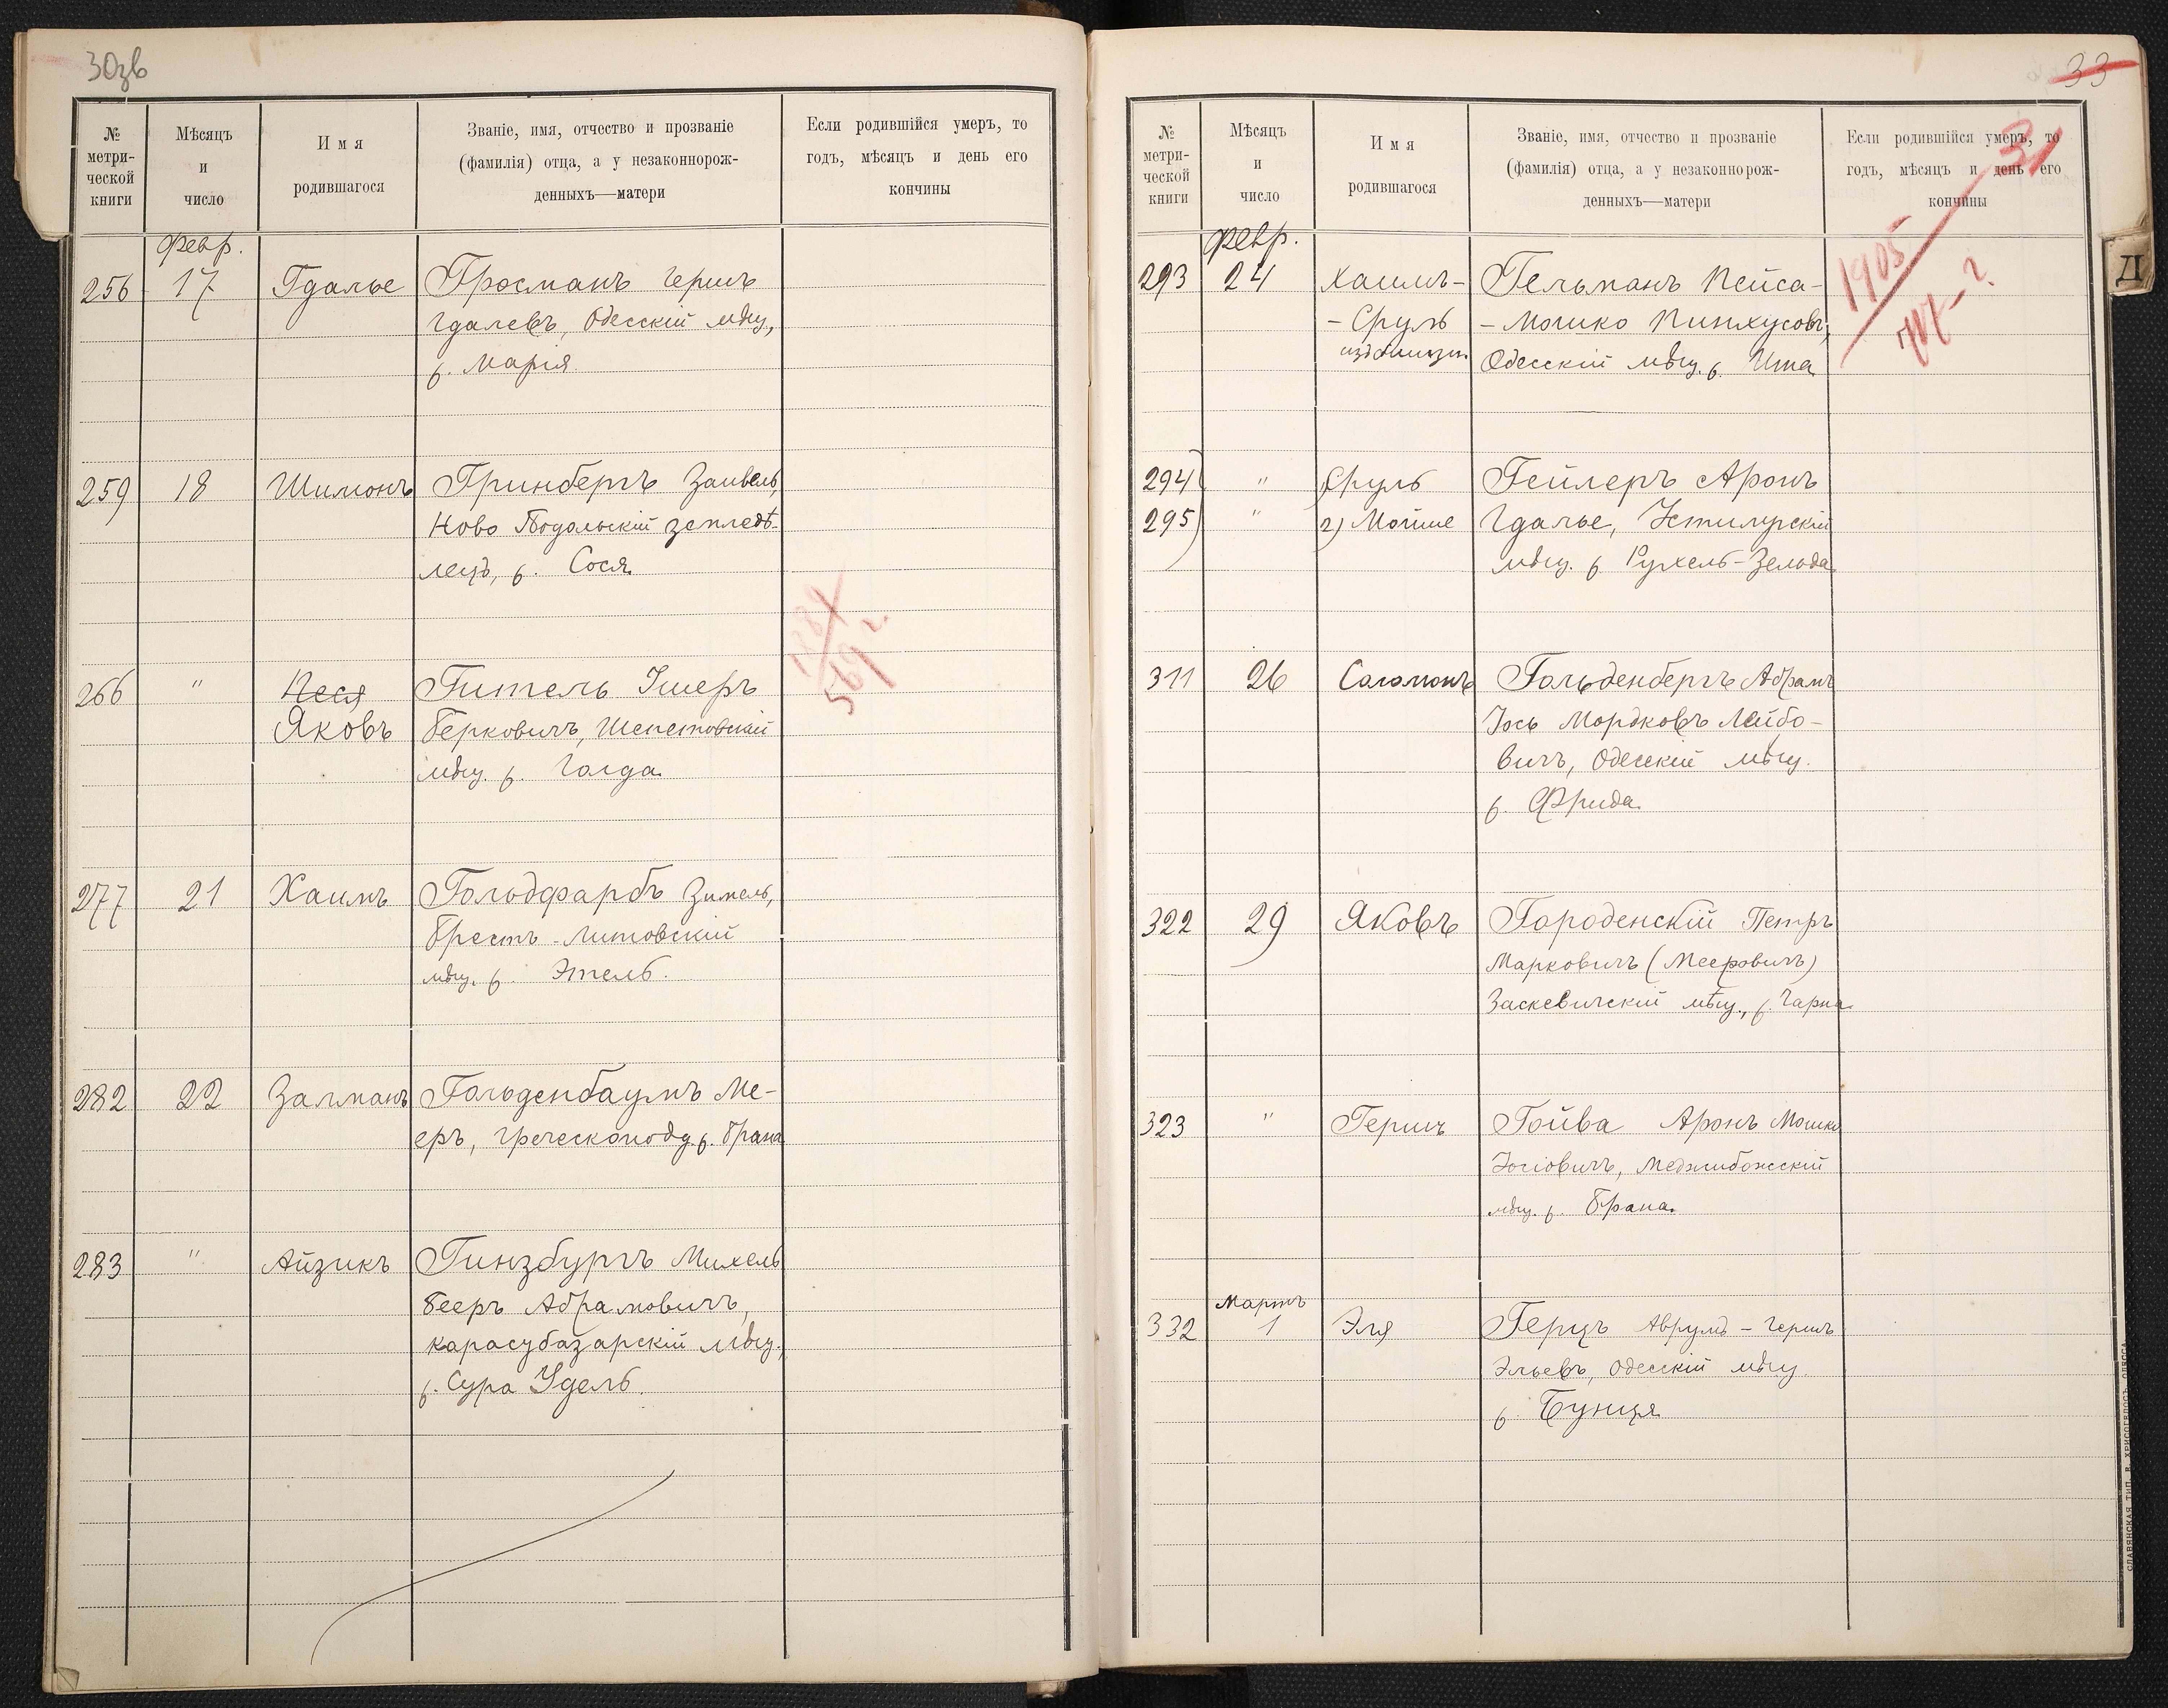 30зв
№ метри-ческой книги
Мѣсяцъ и число
Имя родившагося
Званіе, имя, отчество и прозваніе (фамилія) отца, а у незаконнорож-денныхъ—матери
Если родившійся умеръ, то годъ, мѣсяцъ и день его кончины
февр.
256 17 Гдалье Гросманъ Гершъ
Гдалевъ, Одесскій мѣщ,
р. Марія
259 18 Шимонъ Гринбергъ Зайвель,
Ново Подольскій земледѣ-
лецъ, р. Сося
266 " Песя Гительъ Ушеръ
Яковъ Берковичъ, Шепетовскій
мѣщ. р. Голда
569
277 21 Хаимъ Гольдфарбъ Зимель,
Брестъ-Литовскій
мѣщ. р. Этель.
282 22 Залманъ Гольденбаумъ Ме-
еръ, греческоподд. р. Брана
283 " Айзикъ Гинзбургъ Михель
Бееръ Абрамовичъ,
карасубазарскій мѣщ.,
р. Сура Удель.
33
31
№ метри-ческой книги
Мѣсяцъ и число
Имя родившагося
Званіе, имя, отчество и прозваніе (фамилія) отца, а у незаконнорож-денныхъ—матери
Если родившійся умеръ, то годъ, мѣсяцъ и день его кончины
февр.
293 24 Хаимъ- Гельманъ Пейса-
- Сруль - Мошко Пинхусовъ,
Одесскій мѣщ. р. Ита
1905
294 " Сруль Гейлеръ Аронъ
295 " 2) Мойше Гдалье, Устилугскій
мѣщ. р. Рухель-Зельда
311 26 Саломонъ Гольденбергъ Абрамъ
Іось Мордковъ Лейбо-
вичъ, Одесскій мѣщ.
р. Фрида
322 29 Яковъ Городенскій Петръ
Марковичъ (Мееровичъ)
Заскевичскій мѣщ., р. Чарна
323 " Гершъ Гойва Аронъ Мошко
Іосіовичъ, Меджибожскій
мѣщ. р. Брана.
Мартъ
332 1 Эля Герцъ Аврумъ-Гершъ
Эльевъ, Одесскій мѣщ.
р. Бунця
Д
СЛАВЯНСКАЯ ТИП. Н. ХРИСОГЕЛОСЪ, ОДЕССА